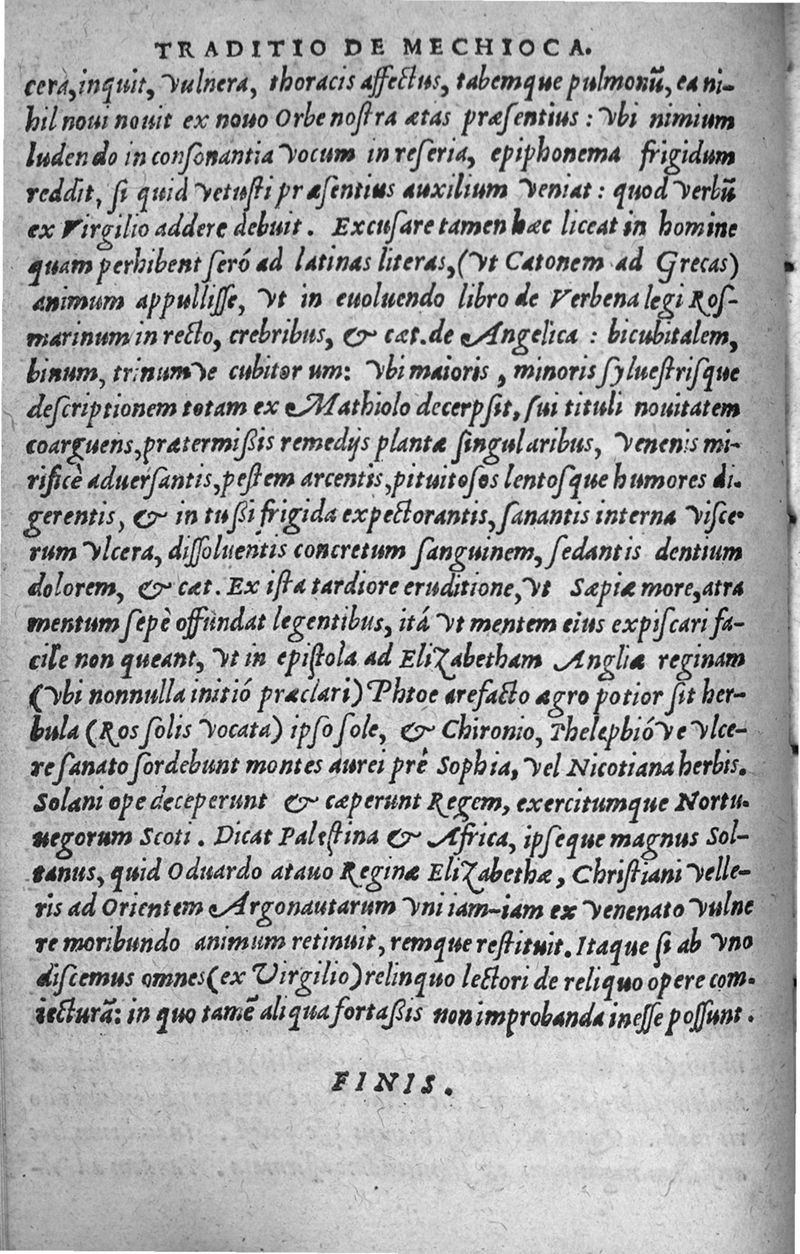 TRADITIO DE MECHIOCA.
cera, inquit, vulnera, thoracis affectus, tabemque pulmonũ, ea ni-
hil noui nouit ex nouo Orbe nostra ætas præsentius: vbi nimium
ludendo in consonantia vocum in re seria, epiphonema frigidum
reddit, si quid vetusti præsentius auxilium veniat: quod verbũ
ex Virgilio addere debuit. Excusare tamen hæc liceat in homine
quam perhibent seró ad latinas literas, (vt Catonem ad Grecas)
animum appulisse, vt in euoluendo libro de Verbena legi Ros-
marinum in recto, crebribus, & cæt. de Angelica: bicubitalem,
binum, trinumve cubitorum: vbi maioris, minoris syluestrisque
descriptionem totam ex Mathiolo decerpsit, sui tituli nouitatem
coarguens, prætermißis remedijs plantæ singularibus, venenis mi-
rificè aduersantis, pestem arcentis, pituitosos lentosque humores di-
gerentis, & in tußi frigida expectorantis, sanantis interna visce-
rum vlcera, dissoluentis concretum sanguinem, sedantis dentium
dolorem, & cæt. Ex ista tardiore eruditione, vt Sæpiæ more, atra
mentum sepè offundat legentibus, itá vt mentem eius expiscari fa-
cile non queant, vt in epistola ad Elizabetham Angliæ reginam
(vbi nonnulla initió præclari) Phtoe arefacto agro potior sit her-
bula (Ros solis vocata) ipso sole, & Chironio, Thelephióve vlce-
re sanato sordebunt montes aurei prê Sophia, vel Nicotiana herbis.
Solani ope deceperunt & cæperunt Regem, exercitumque Nortu-
uegorum Scoti. Dicat Palestina & Africa, ipseque magnus Sol-
tanus, quid Oduardo atauo Reginæ Elizabethæ, Christiani velle-
ris ad Orientem Argonautarum vni iam-iam ex venenato vulne
re moribundo animum retinuit, remque restituit. Itaque si ab vno
discemus omnes (ex Virgilio) relinquo lectori de reliquo opere com-
iecturã: in quo tamẽ aliqua fortaßis non improbanda inesse possunt.
FINIS.